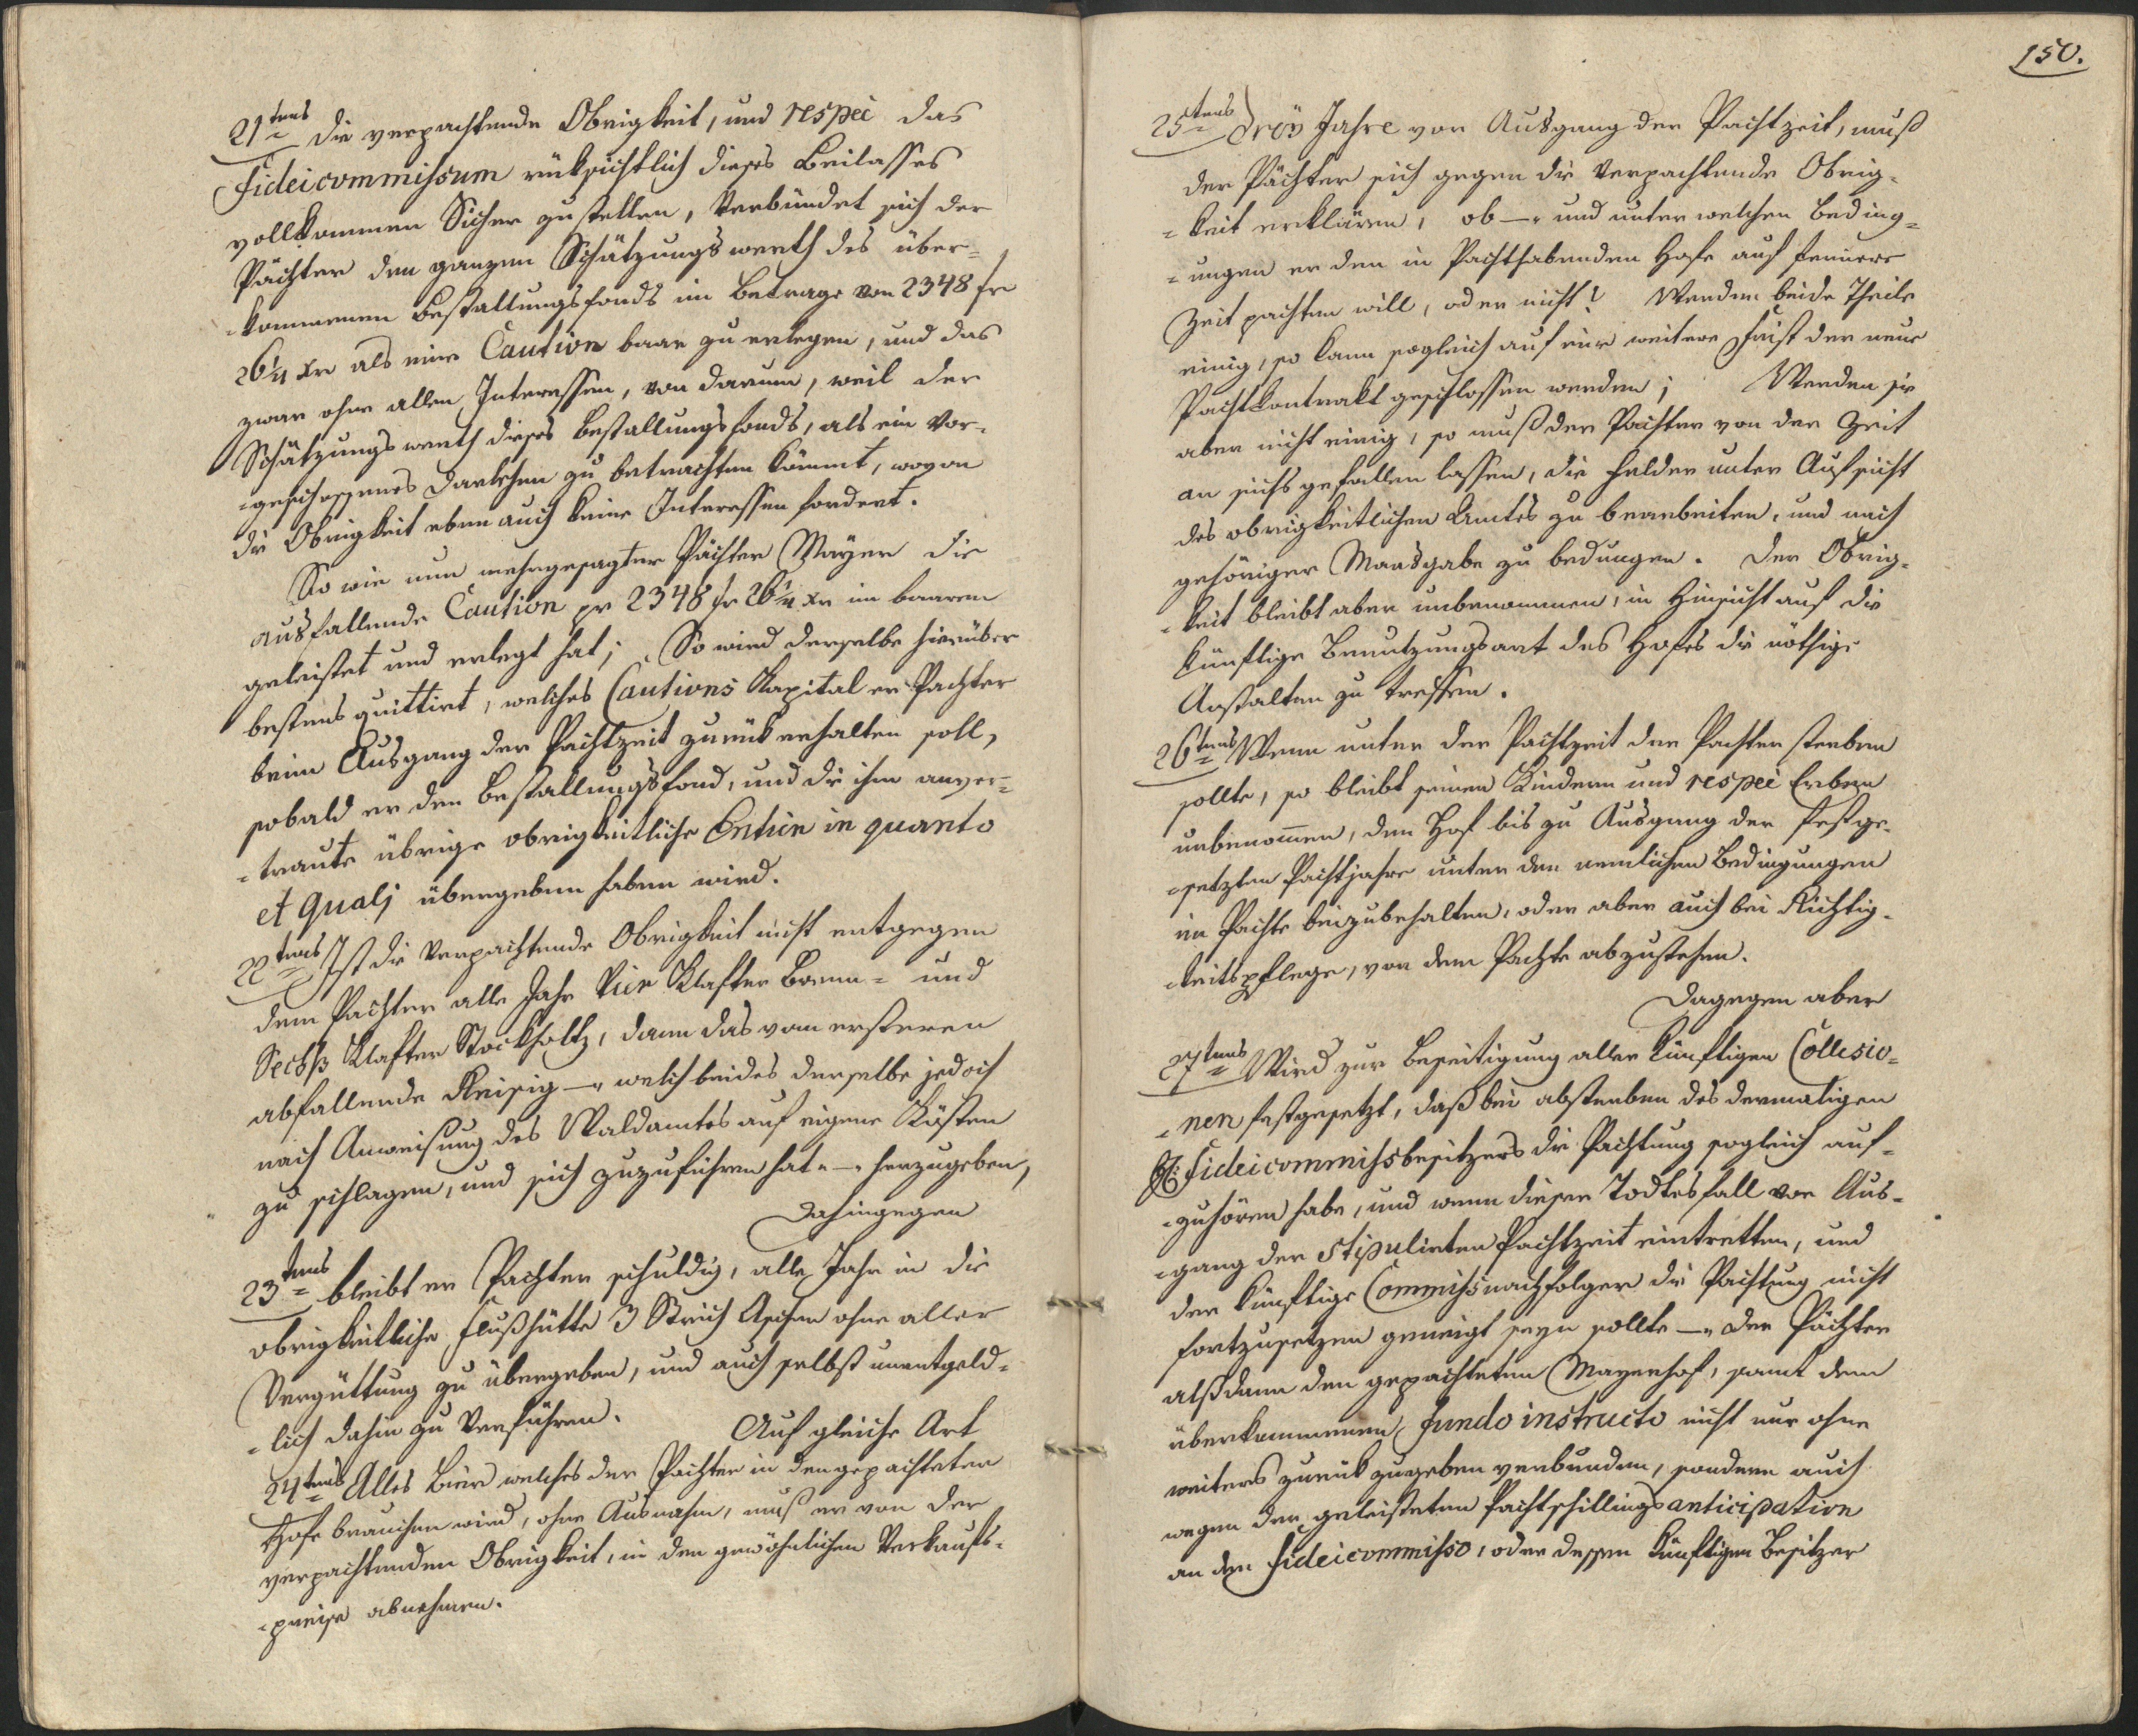 21tens die verpachtende Obrigkeit, und respec das
Fideicommissum rüksichtlich dieses Beilasses
vollkommen Sicher zu stellen, Verbündet sich der
Pächter den ganzen Schätzungswerth des über-
-kommenen Bestallungsfonds im Betrage von 2348 fr
26 1/4 Xr als eine Caution baar zu erlegen, und das
zwar ohne allen Interessen, von darum, weil der
Schätzungswerth dieses Bestallungsfonds, als ein Vor-
-geschossenes Darlehen zu betrachten kömmt, wovon
die Obrigkeit eben auch keine Interessen fordert.
So wie nun mehrgesagter Pächter Mayer die
ausfallende Caution pr 2348 fr 26 1/4 Xr im baaren
geleistet und erlegt hat; So wird derselbe hierüber
bestens quittirt, welches Cautions Kapital er Pachter
beim Ausgang der Pachtzeit zurük erhalten soll,
sobald er den Bestallungsfond, und die ihm anver-
-traute übrige obrigkeitliche Entien in quanto
et quali übergeben haben wird.
22tens Ist die Verpachtende Obrigkeit nicht entgegen
dem Pachter alle Jahr Vier Klafter Brenn- und
Sechß Klafter Stockholtz, dann das vom ersteren
abfallende Reisig —, welch beides derselbe jedoch
nach Anweisung des Waldamtes auf eigene Kösten
zu schlagen, und sich zuzuführen hat —, herzugeben,
Dahingegen
23tens bleibt er Pachter schuldig, alle Jahr in die
obrigkeitliche Flußhütte 3 Strich Aschen ohne aller
Vergüttung zu übergeben, und auch selbst unentgeld-
-lich dahin zu Verführen. Auf gleiche Art
24tens Alles Bier welches der Pachter in den gepachteten
Hofe brauchen wird, ohne Ausnahm, muß er von der
verpachtenden Obrigkeit, in den gewöhnlichen Verkaufs-
-preise abnehmen.
150.
25tens Dreÿ Jahre vor Ausgang der Pachtzeit, muß
der Pächter sich gegen die Verpachtende Obrig-
-keit erklären, ob —, und unter welchen Beding-
-ungen er den in Pachthabenden Hofe auf fernere
Zeit pachten will, oder nicht? Werden beide Theile
einig, so kann sogleich auf eine weitere Frist der neue
Pachtkontrakt geschlossen werden; Werden sie
aber nicht einig, so muß der Pachter von der Zeit
an sichs gefallen lassen, die Felder unter Aufsicht
des obrigkeitlichen Amtes zu bearbeiten, und nach
gehöriger Maasgabe zu bedungen. Der Obrig-
-keit bleibt aber unbenommen, in Hinsicht auf die
künftige Benutzungsart des Hofes die nöthige
Anstalten zu treffen.
26tens Wenn unter der Pachtzeit der Pachter sterben
sollte, so bleibt seinen Kindern und respec Erben
unbenom̅en, den Hof bis zu Ausgang der festge-
-setzten Pachtjahre unter den nemlichen Bedingungen
im Pachte beizubehalten, oder aber auch bei Richtig-
-keitspflege, von dem Pachte abzustehen.
Dagegen aber
27tens Wird zur Beseitigung aller künftigen Collisio-
-nen festgesetzt, daß bei absterben des dermaligen
H: Fideicommißbesitzers die Pachtung sogleich auf-
-zuhören habe, und wenn dieser Todtesfall vor Aus-
-gang der stipulirten Pachtzeit eintretten, und
der künftige Commißnachfolger die Pachtung nicht
fortzusetzen geneigt seyn sollte —, der Pächter
alßdann den gepachteten Mayerhof, samt dem
überkommenen Fundo instructo nicht nur ohne
weiters zurük zugeben verbunden, sondern auch
wegen der geleisteten Pachtschillings anticipation
an den Fideicommisso, oder dessen künftigen Besitzer